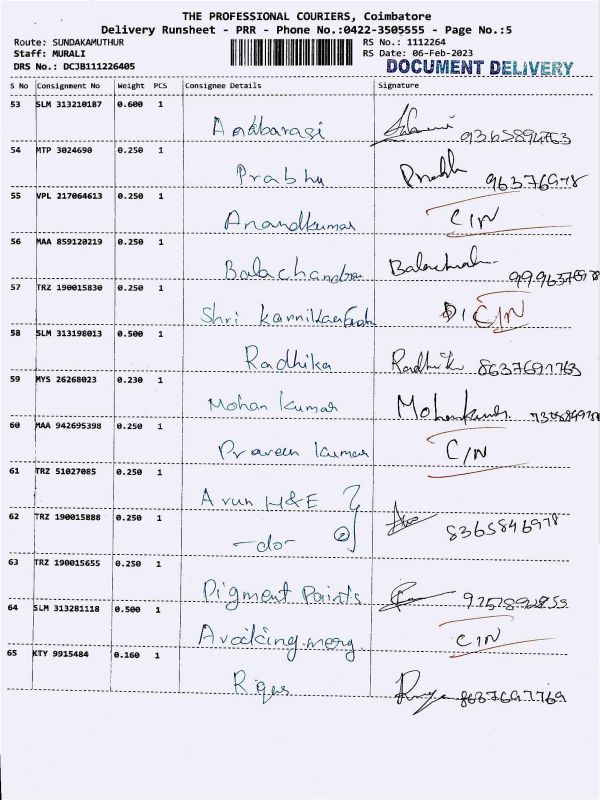 THE PROFESSIONAL COURIERS, Coimbatore
Delivery Runsheet - PRR - Phone No.:0422-3505555 - Page No.:5
Route: SUNDAKAMUTHUR RS No.: 1112264
Staff: MURALI RS Date: 06-Feb-2023
DRS No.: DCJB111226405 DOCUMENT DELIVERY
S No Consignment No Weight PCS Consignee Details Signature
53 SLM 313210187 0.600 1
54 MTP 3024690 0.250 1
Prabhu 96376978
55 VPL 217064613 0.250 1
Anandkumar C/N
56 MAA 859120219 0.250 1
Balachandran
57 TRZ 190015830 0.250 1
Shri C/N
58 SLM 313198013 0.500 1
Radhika 8637691763
59 MYS 26268023 0.230 1
Mohan Kumar
60 MAA 942695398 0.250 1
Praveen Kumar C/N
61 TRZ 51027085 0.250 1
Arun H&E
62 TRZ 190015888 0.250 1
-do- 8365846978
63 TRZ 190015655 0.250 1
Pigment Paints
64 SLM 313281118 0.500 1
C/N
65 KTY 9915484 0.160 1
8637697769